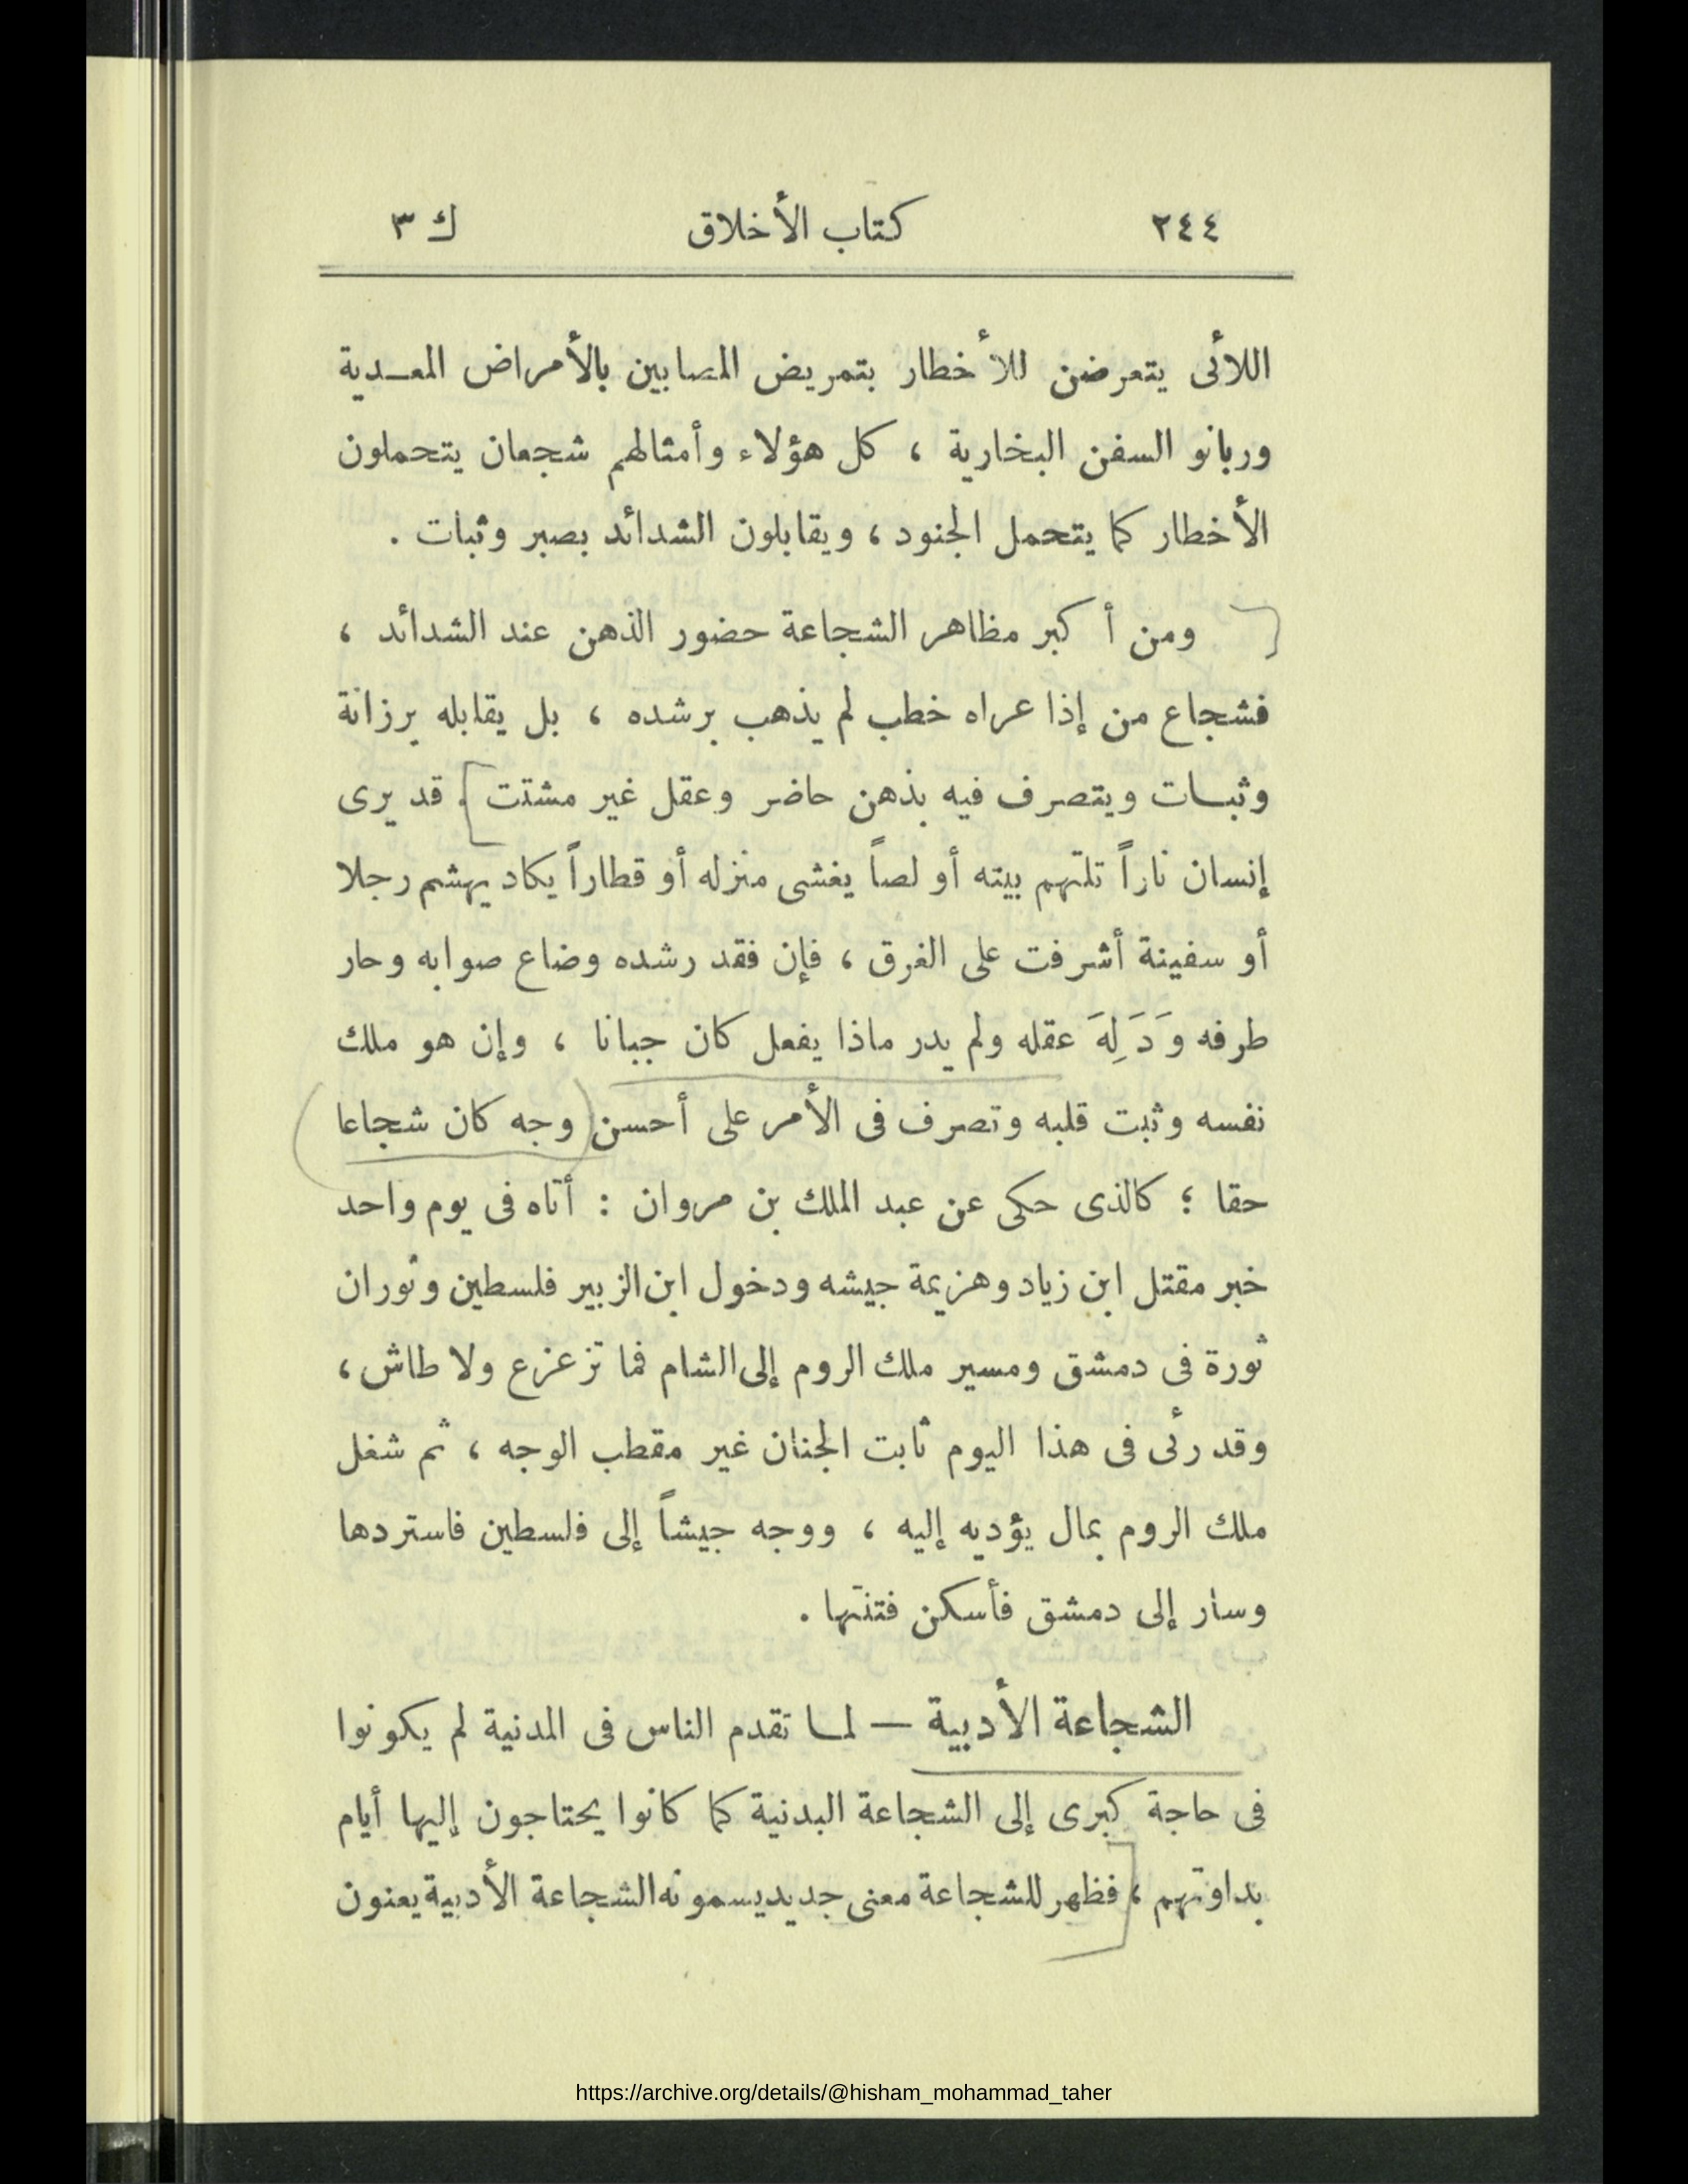 ٢٤٤ كتاب الأخلاق ك ٣
اللائى يتعرضن للأخطار بتمريض المصابين بالأمراض المعـدية
وربانو السفن البخارية ، كل هؤلاء وأمثالهم شجعان يتحملون
الأخطار كما يتحمل الجنود ، ويقابلون الشدائد بصبر وثبات .
ومن أكبر مظاهر الشجاعة حضور الذهن عند الشدائد ،
فشجاع من إذا عراه خطب لم يذهب برشده ، بل يقابله برزانة
وثبـات ويتصرف فيه بذهن حاضر وعقل غير مشتت . قد يرى
إنسان ناراً تلتهم بيته أو لصاً يغشى منزله أو قطاراً يكاد يهشم رجلا
أو سفينة أشرفت على الغرق ، فإن فقد رشده وضاع صوابه وحار
طرفه وَدَلِهَ عقله ولم يدر ماذا يفعل كان جبانا ، وإن هو ملك
نفسه وثبت قلبه وتصرف فى الأمر على أحسن وجه كان شجاعا
حقا ؛ كالذى حكى عن عبد الملك بن مروان : أتاه فى يوم واحد
خبر مقتل ابن زياد وهزيمة جيشه ودخول ابن الزبير فلسطين وثوران
ثورة فى دمشق ومسير ملك الروم إلى الشام فما تزعزع ولا طاش ،
وقد رئى فى هذا اليوم ثابت الجنان غير مقطب الوجه ، ثم شغل
ملك الروم بمال يؤديه إليه ، ووجه جيشاً إلى فلسطين فاستردها
وسار إلى دمشق فأسكن فتنتها .
الشجاعة الأدبية — لمـا تقدم الناس فى المدنية لم يكونوا
فى حاجة كبرى إلى الشجاعة البدنية كما كانوا يحتاجون إليها أيام
بداوتهم ، فظهر للشجاعة معنى جديد يسمونه الشجاعة الأدبية يعنون
https://archive.org/details/@hisham_mohammad_taher